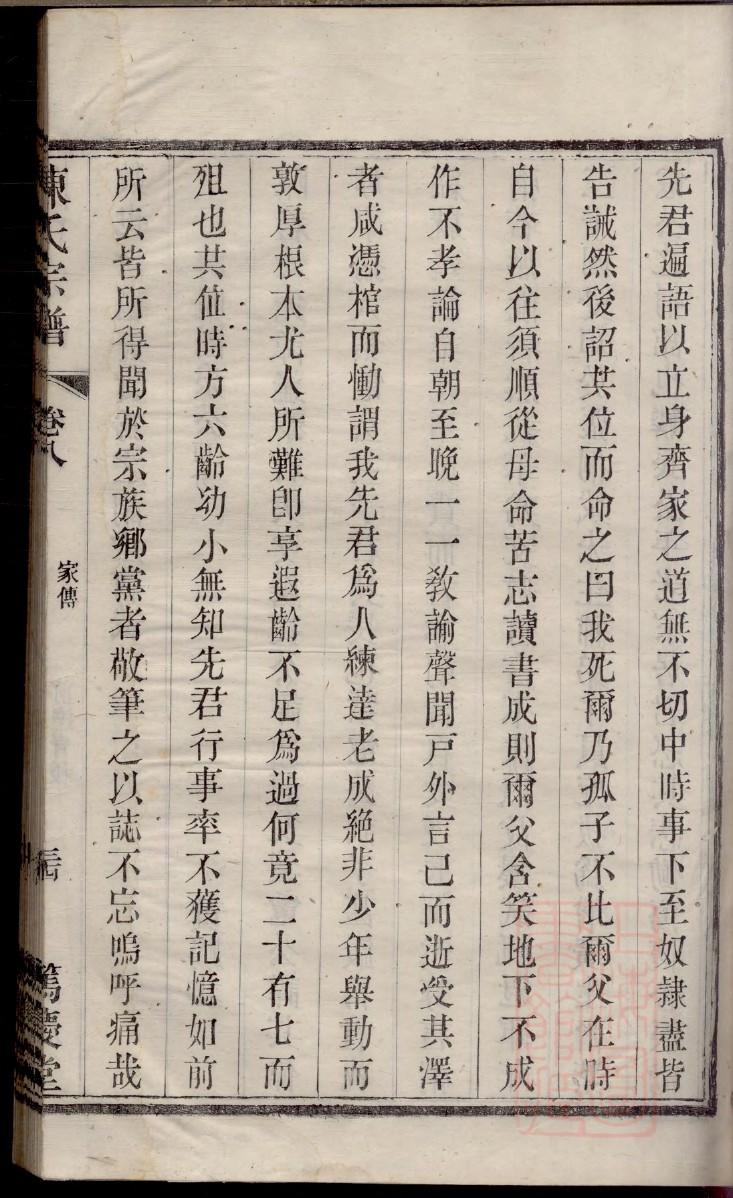 先君遍語以立身齊家之道無不切中時事下至奴隷盡皆
告誡然後詔其位而命之曰我死爾乃孤子不比爾父在時
自今以往須順從母命苦志讀書成則爾父含笑地下不成
作不孝論自朝至晚一一敎諭聲聞戸外言己而逝受其澤
者咸憑棺而慟謂我先君爲人練達老成絶非少年舉動而
敦厚根本尤人所難卽享遐齡不足爲過何竟二十有七而
殂也其位時方六齡幼小無知先君行事率不獲記憶如前
所云皆所得聞於宗族鄉黨者敬筆之以誌不忘嗚呼痛哉
陳氏宗譜
卷八
家傳
篤慶堂